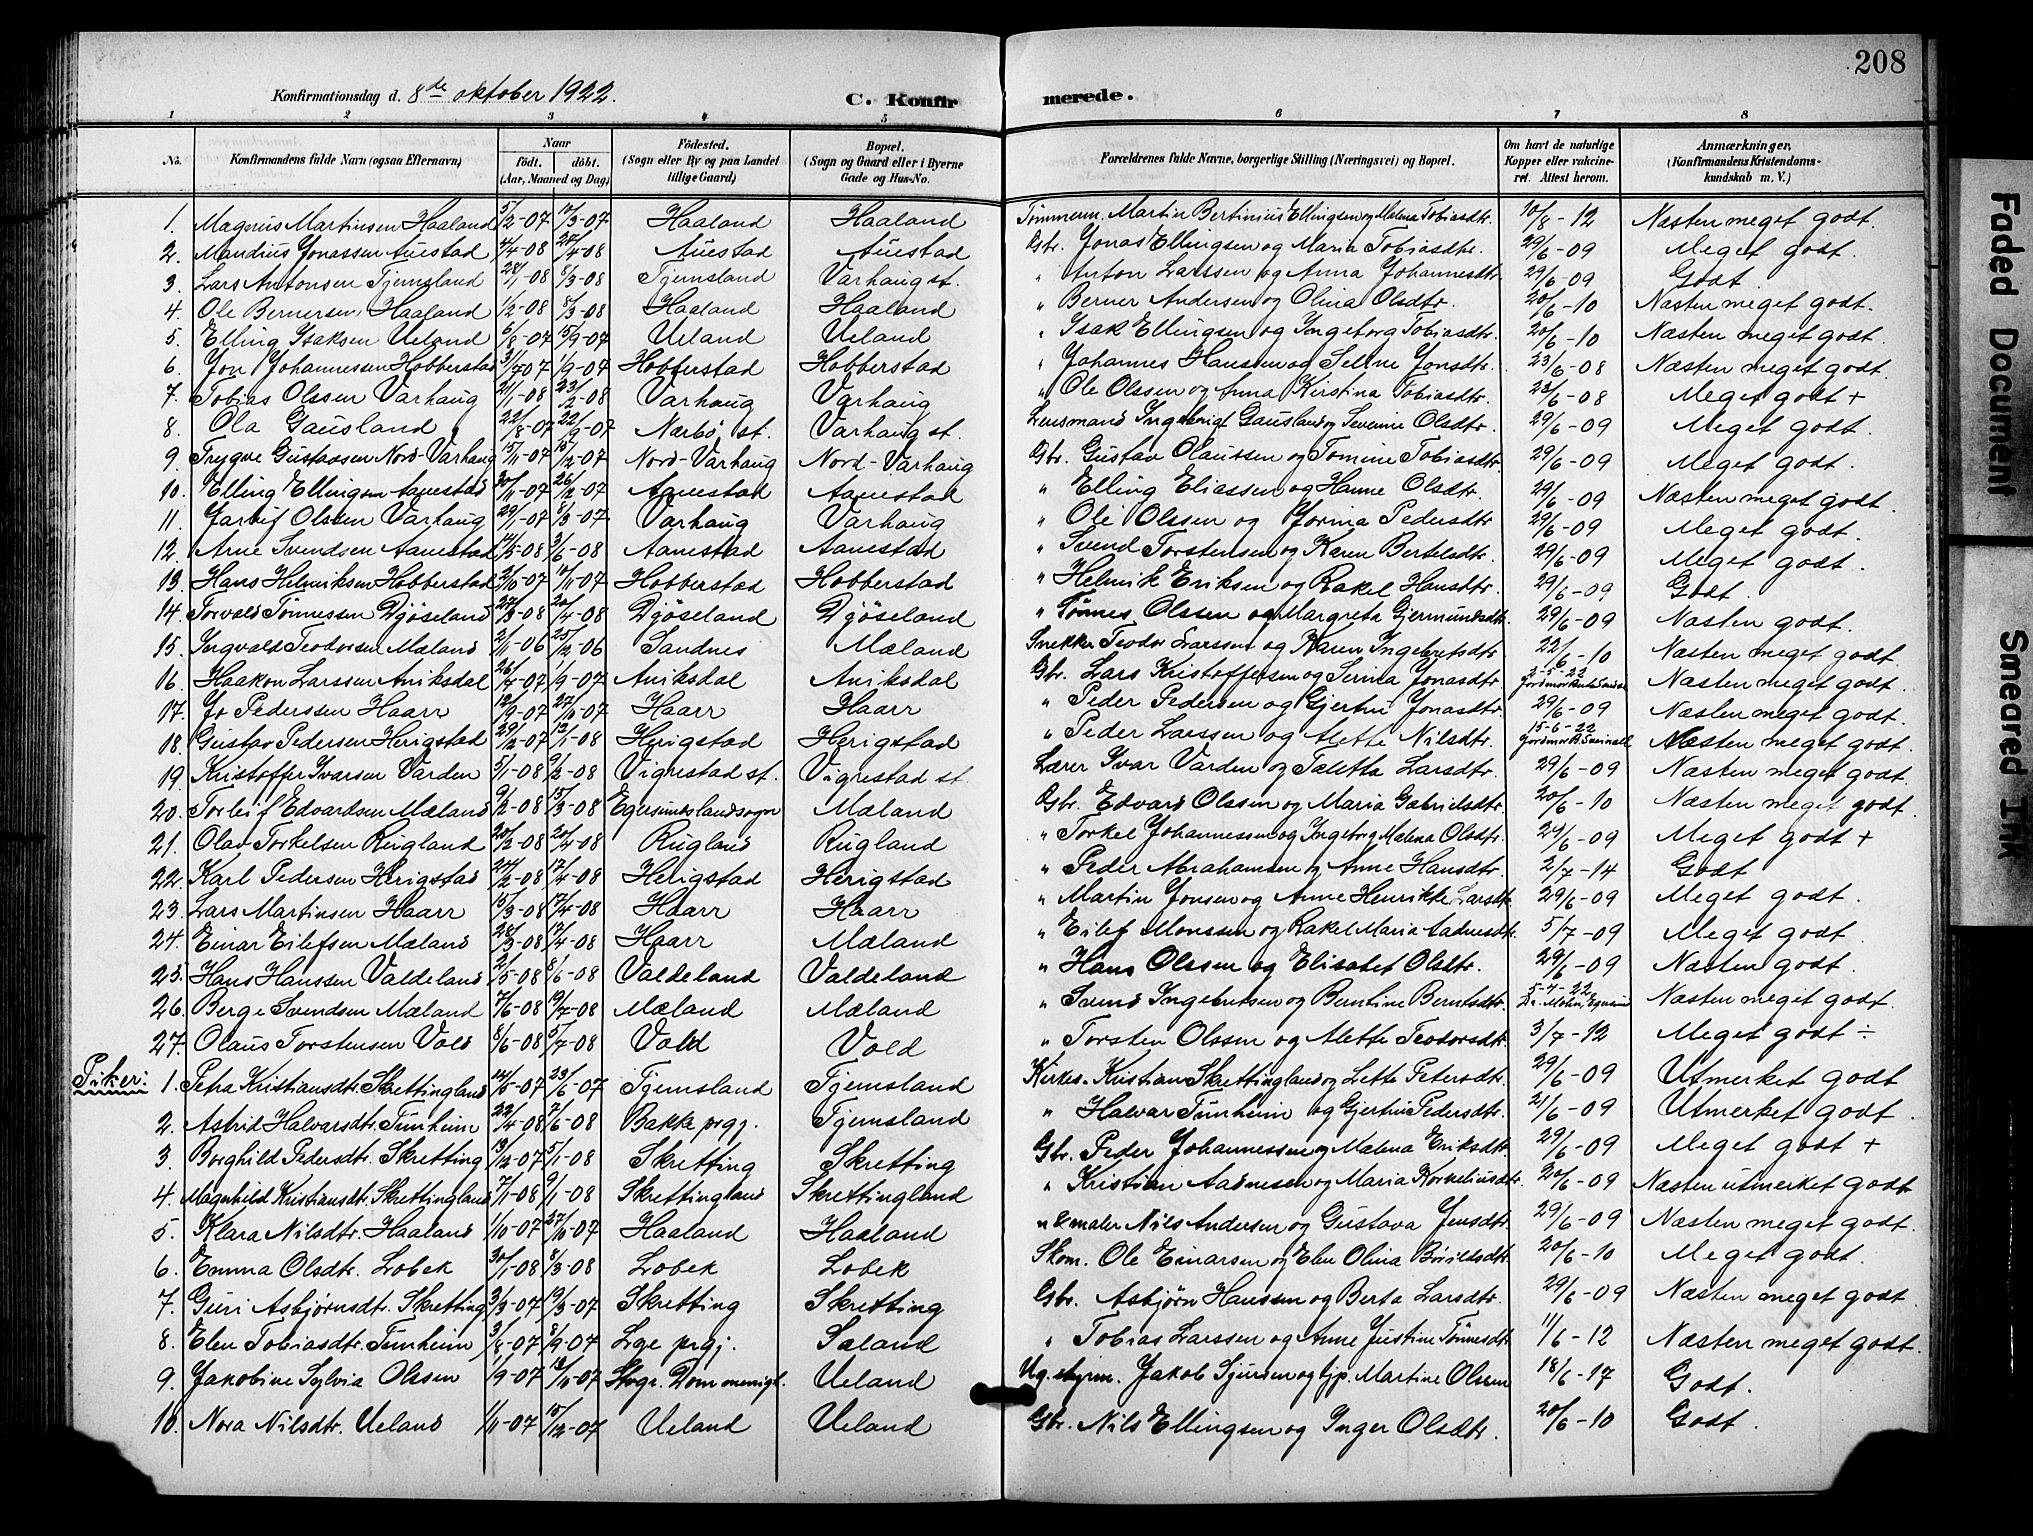 208
Konfirmationsdag d. 8de oktober 1922.
C. Konfirmerede.
1 2 3 4 5 6 7 8
No. Konfirmandens fulde Navn (ogsaa Efternavn) Naar födt. döbt. (Aar, Maaned og Dag) Födested. (Sogn eller By og paa Landet tillige Gaard) Bopæl. (Sogn og Gaard eller i Byerne Gade og Hus-No. Forældrenes fulde Navne, borgerlige Stilling (Næringsvei) og Bopæl. Om havt de naturlige Kopper eller vakcineret. Attest herom. Anmærkninger. (Konfirmandens Kristendomskundskab m. V.)
1. Magnus Martinsen Haaland 5/2-07 10/3-07 Haaland Haaland Tømmerm. Martin Bertinius Ellingsen og Malena Tobiasdtr. 10/8-12 Næsten meget godt.
2. Mandius Jonassen Auestad 4/4-08 20/4-08 Auestad Auestad Gbr. Jonas Ellingsen og Maria Tobiasdtr. 29/6-09 Meget godt.
3. Lars Antonsen Tjemsland 28/1-08 8/3-08 Tjemsland Varhaug st. " Anton Larssen og Anna Johannesdtr. 29/6-09 Godt.
4. Ole Bernersen Haaland 1/2-08 8/3-08 Haaland Haaland " Berner Andersen og Olina Olsdtr. 20/6-10 Næsten meget godt.
5. Elling Isaksen Ueland 6/8-07 15/9-07 Ueland Ueland " Isak Ellingsen og Ingeborg Tobiasdtr. 20/6-10 Næsten meget godt.
6. Jon Johannesen Hobberstad 31/7-07 1/9-07 Hobberstad Hobberstad " Johannes Hansen og Seline Jonsdtr. 23/6-08 Næsten meget godt.
7. Tobias Olssen Varhaug 21/1-08 23/2-08 Varhaug Varhaug " Ole Olssen og Anna Kirstina Tobiasdtr. 23/6-08 Meget godt +
8. Ola Gausland 22/8-07 22/9-07 Nærbö st. Varhaug st. Lensmand Ingebrigt Gausland og Severine Olsdtr. 29/6-09 Meget godt.
9. Trygve Gustavsen Nord-Varhaug 15/11-07 15/12-07 Nord-Varhaug Nord-Varhaug Gbr. Gustav Olaussen og Tomine Tobiasdtr. 29/6-09 Meget godt.
10. Elling Ellingsen Aanestad 20/11-07 26/12-07 Aanestad Aanestad " Elling Eliassen og Hanne Olsdtr. 29/6-09 Næsten meget godt.
11. Olsen Varhaug 29/1-07 8/3-07 Varhaug Varhaug " Ole Olssen og Jorina Pedersdtr. 29/6-09 Meget godt.
12. Arne Svendsen Aanestad 14/5-08 3/6-08 Aanestad Aanestad " Svend Torstensen og Karen Berteldtr. 29/6-09 Meget godt.
13. Hans Helmiksen Hobberstad 3/10-07 10/11-07 Hobberstad Hobberstad " Helmik Eriksen og Rakel Hansdtr. 29/6-09 Godt.
14. Torvald Tønnessen Djöseland 27/3-08 20/4-08 Djöseland Djöseland " Tønnes Olssen og Margreta Gjermundsdtr. 29/6-09 Næsten godt.
15. Ingvald Teodorsen Mæland 2/11-06 25/12-06 Sandnes Mæland Snekker Teodor Larssen og Karen Ingebretsdtr. 22/6-10 Næsten meget godt.
16. Haakon Larssen Aniksdal 26/7-07 1/9-07 Aniksdal Aniksdal Gbr. Lars Kristoffersen og Serina Jonasdtr. 2-5-22 Jordmor Næsten meget godt.
17. Jo Pederssen Haarr 12/9-07 27/10-07 Haarr Haarr " Peder Pedersen og Gjertin Jonasdtr. 29/6-09 Næsten meget godt.
18. Gustav Pedersen Herigstad 29/12-07 12/1-08 Herigstad Herigstad " Peder Larssen og Alette Nilsdtr. 15-6-22 Jordmor Næsten meget godt.
19. Kristoffer Ivarsen Varden 5/1-08 9/2-08 Vigrestad st. Vigrestad st. Lærer Ivar Varden og Taletta Larsdtr. 29/6-09 Næsten meget godt.
20. Torleif Edvardsen Mæland 9/2-08 15/3-08 Egersunds landsogn Mæland Gbr. Edvard Olssen og Maria Gabrielsdtr. 20/6-10 Næsten meget godt.
21. Olav Torkelsen Rugland 20/2-08 20/4-08 Rugland Rugland " Torkel Johannessen og Ingeborg Malena Olsdtr. 29/6-09 Meget godt +
22. Karl Pedersen Herigstad 24/2-08 12/4-08 Herigstad Herigstad " Peder Abrahamsen og Anne Hansdtr. 2/7-14 Godt
23. Lars Martinsen Haarr 15/3-08 17/4-08 Haarr Haarr " Martin Jonsen og Anne Henrikke Larsdtr. 29/6-09 Meget godt.
24. Einar Eilefsen Mæland 28/3-08 12/4-08 Haarr Mæland " Eilef Monssen og Rakel Maria Aadnesdtr. 5/7-09 Meget godt.
25. Hans Hanssen Valdeland 2/5-08 8/6-08 Valdeland Valdeland " Hans Olssen og Elisabet Olsdtr. 29/6-09 Næsten godt.
26. Berge Svendsen Mæland 7/6-08 19/7-08 Mæland Mæland " Svend Ingebretsen og Berntine Berntsdtr. 5-4-22 Næsten meget godt.
27. Olaus Torstensen Vold 8/6-08 5/7-08 Vold Vold " Torsten Olssen og Alette Teodorsdtr. 3/7-12 Meget godt ÷
Piker:
1. Petra Kristiansdtr. Skrettingland 24/5-07 23/6-07 Tjemsland Tjemsland Kirkes. Kristian Skrettingland og Lette Petersdtr. 29/6-09 Utmerket godt
2. Astrid Halvarsdtr. Tunheim 22/4-08 7/6-08 Bakke prgj. Tjemsland " Halvar Tunheim og Gjertine Pedersdtr. 21/6-09 Utmerket godt.
3. Borghild Pedersdtr. Skretting 13/12-07 5/1-08 Skretting Skretting Gbr. Peder Johannessen og Malena Eriksdtr. 29/6-09 Meget godt +
4. Magnhild Kristiansdtr. Skrettingland 7/1-08 9/1-08 Skrettingland Skrettingland " Kristian Aadnesen og Maria Korneliusdtr. 20/6-09 Næsten utmerket godt
5. Klara Nilsdtr. Haaland 1/10-07 27/10-07 Haaland Haaland " & maler Nils Andersen og Gustava Jensdtr. 29/6-09 Næsten meget godt.
6. Emma Olsdtr. Lobek 30/1-08 8/3-08 Lobek Lobek Skom. Ole Einarsen og Elen Olina 20/6-10 Meget godt.
7. Guri Asbjørnsdtr. Skretting 3/3-07 19/3-07 Skretting Skretting Gbr. Asbjörn Hanssen og Berta Larsdtr. 29/6-09 Næsten meget godt.
8. Elen Tobiasdtr. Tunheim 3/8-07 8/9-07 Lye prgj. Saland " Tobias Larssen og Anne Justine Tönnesdtr. 11/6-12 Næsten meget godt.
9. Jakobine Sylvia Olssen 1/9-07 18/10-07 Stvgr. Dommenigh. Ueland Ug. styrm. Jakob Sjursen og tjp. Martine Olssen 18/6-17 Godt.
10. Nora Nilsdtr. Ueland 1/11-07 15/12-07 Ueland Ueland Gbr. Nils Ellingsen og Inger Olsdtr. 20/6-10 Godt.
Faded Document
Smeared Ink